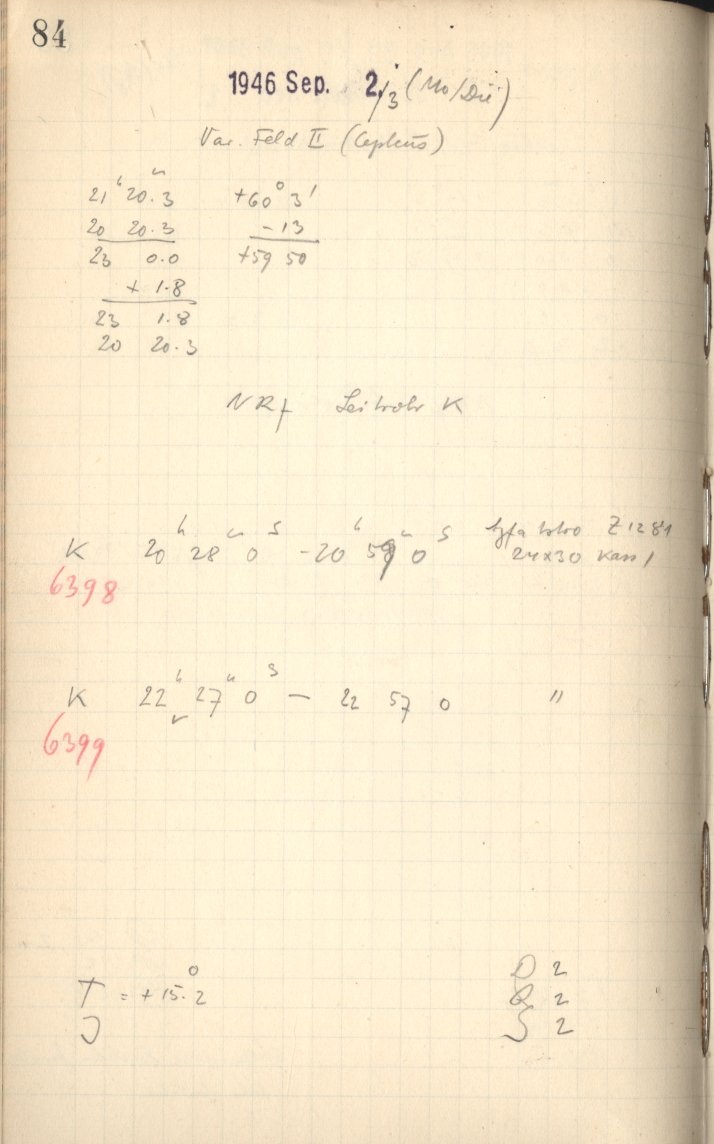 84
1946 Sep. 2./3 (Mo/Die)
Var. Feld II (Cepheus)
21ʰ 20ᵐ.3 +60° 3'
20 20.3 -13
23 0.0 +59 50
+ 1.8
23 1.8
20 20.3
Leitrohr K
K 20ʰ 28ᵐ 0ˢ - 20ʰ 59ᵐ 0ˢ Agfa Astro Z1281
24x30 Kass 1
6398
K 22ʰ 27ᵐ 0ˢ — 22 57 0 "
6399
T = +15.°2
J
D 2
2
S 2